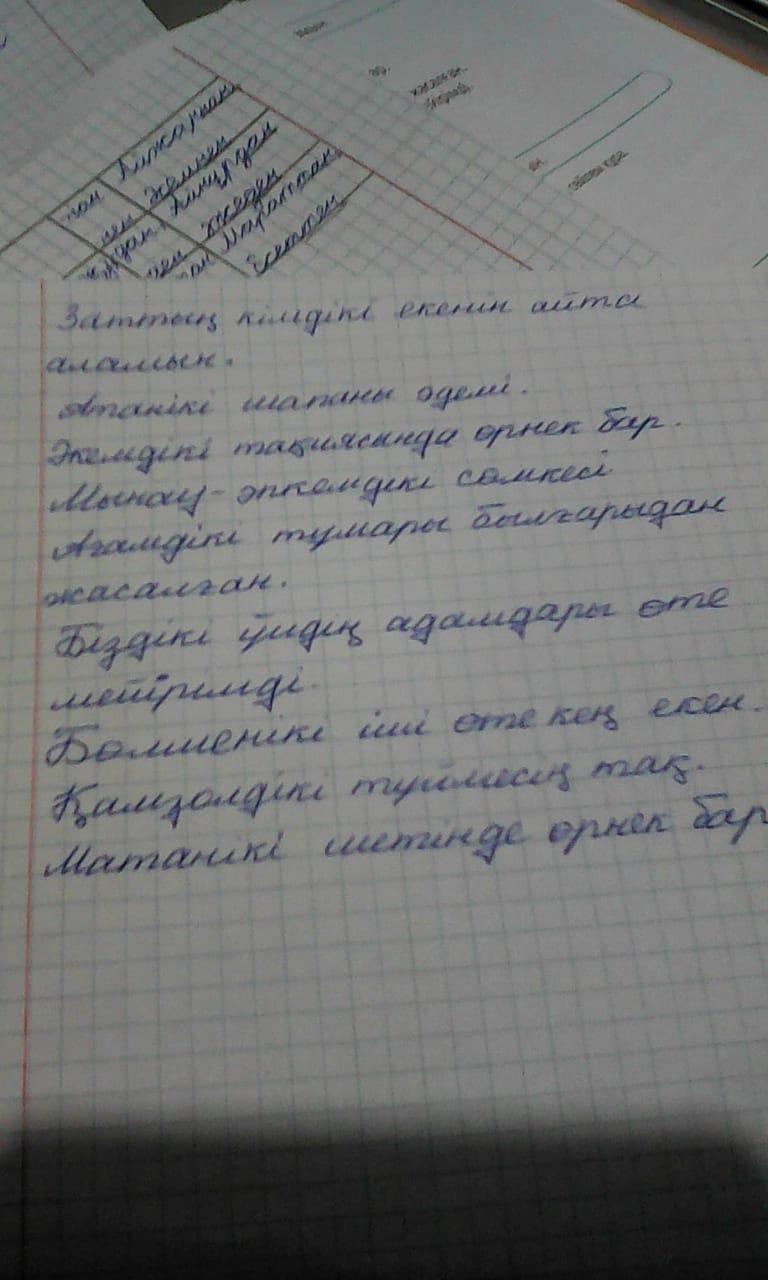 жасалған
сөзбен құра
пан Анжардан
пен әкемнен
Айнұрдан
пен әкеден
Мараттан
Әсеттен
Заттың кімдікі екенін айта
аламын.
Атанікі шапаны әдемі.
Әкемдікі тақиясында өрнек бар.
Мынау-әпкемдікі сөмкесі
Ағамдікі тұмары былғарыдан
жасалған.
Біздікі үйдің адамдары өте
мейірімді.
Бөлменікі іші өте кең екен.
Қамзолдікі түймесің тақ.
Матанікі шетінде өрнек бар